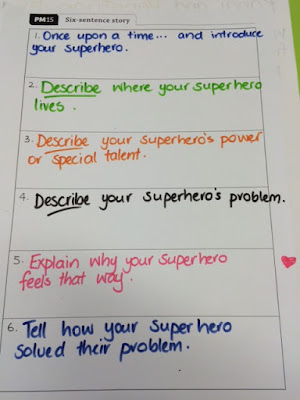 PM15 Six-sentence story
1. Once upon a time... and introduce
your superhero.
2. Describe where your superhero
lives.
3. Describe your superhero's power
or special talent.
4. Describe your superhero's problem.
5. Explain why your superhero
feels that way.
6. Tell how your superhero
solved their problem.